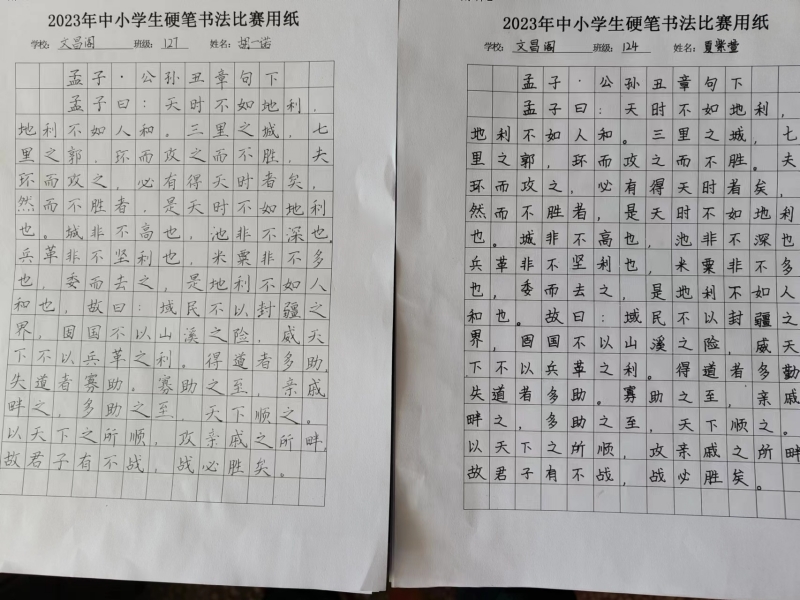 2023年中小学生硬笔书法比赛用纸
学校：文昌阁 班级：127 姓名：胡一诺
孟子·公孙丑章句下
孟子曰：天时不如地利，
地利不如人和。三里之城，七
里之郭，环而攻之而不胜，夫
环而攻之，必有得天时者矣，
然而不胜者，是天时不如地利
也。城非不高也，池非不深也，
兵革非不坚利也，米粟非不多
也，委而去之，是地利不如人
和也，故曰：域民不以封疆之
界，固国不以山溪之险，威天
下不以兵革之利。得道者多助，
失道者寡助。寡助之至，亲戚
畔之，多助之至，天下顺之。
以天下之所顺，攻亲戚之所畔，
故君子有不战，战必胜矣。
2023年中小学生硬笔书法比赛用纸
学校：文昌阁 班级：124 姓名：夏紫萱
孟子·公孙丑章句下
孟子曰：天时不如地利，
地利不如人和。三里之城，七
里之郭，环而攻之而不胜。夫
环而攻之，必有得天时者矣，
然而不胜者，是天时不如地利
也。城非不高也，池非不深也
兵革非不坚利也，米粟非不多
也，委而去之，是地利不如人
和也。故曰：域民不以封疆之
界，固国不以山溪之险，威天
下不以兵革之利。得道者多勤
失道者多助。寡助之至，亲戚
畔之，多助之至，天下顺之。
以天下之所顺，攻亲戚之所畔
故君子有不战，战必胜矣。